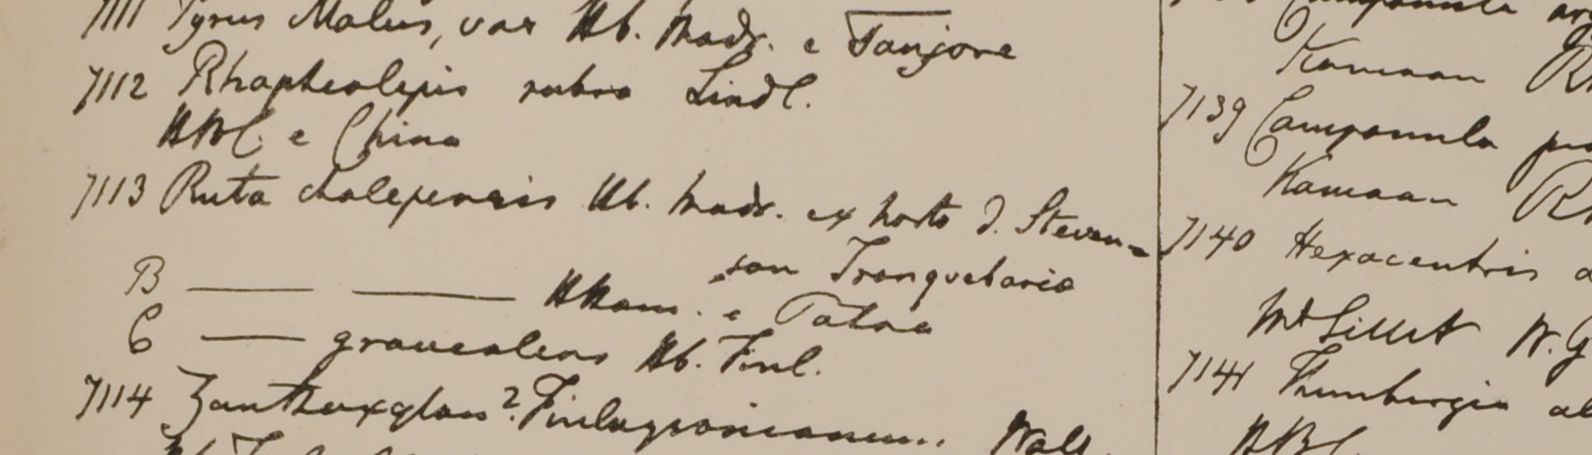 7111 Pyrus Malus, var Hb. Madr. e Tanjore
7112 Rhapheolepis rubra Lindl.
HBC. e China
7113 Ruta chalepensis Hb. Madr. ex horto d. Steven=
son Tranquebaria
B — — HHam. e Patna
C — graveolens Hb. Finl.
7114 Zanthoxylon? Finlaysonianum. Wall.
Campanula
Kamaon
7139 Campanula
Kamaon
7140 Hexacentris
Mt Sillet W. G
7141 Thunbergia al
HBC